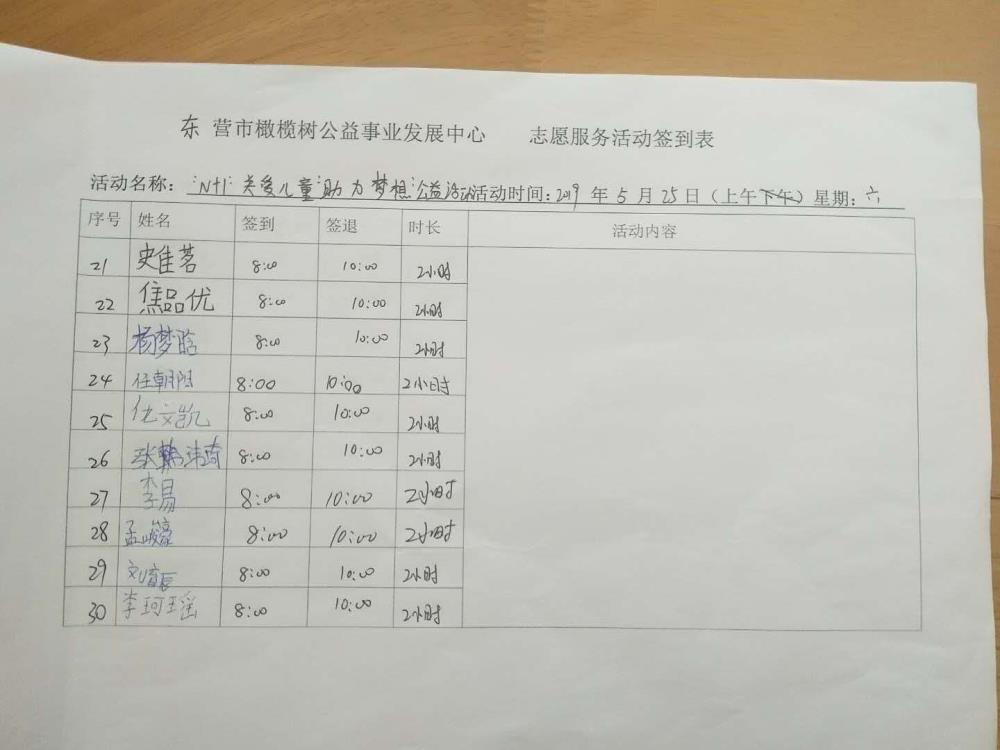 东 营市橄榄树公益事业发展中心 志愿服务活动签到表
活动名称："N+1"关爱儿童"助力梦想"公益活动 活动时间：2019 年 5 月 25 日（上午下午）星期：六
序号 姓名 签到 签退 时长 活动内容
21 史佳茗 8:00 10:00 2小时
22 焦品优 8:00 10:00 2小时
23 杨梦晗 8:00 10:00 2小时
24 任朝阳 8:00 10:00 2小时
25 仇文凯 8:00 10:00 2小时
26 张 琦 8:00 10:00 2小时
27 李易 8:00 10:00 2小时
28 孟峻 8:00 10:00 2小时
29 刘 辰 8:00 10:00 2小时
30 李珂瑶 8:00 10:00 2小时